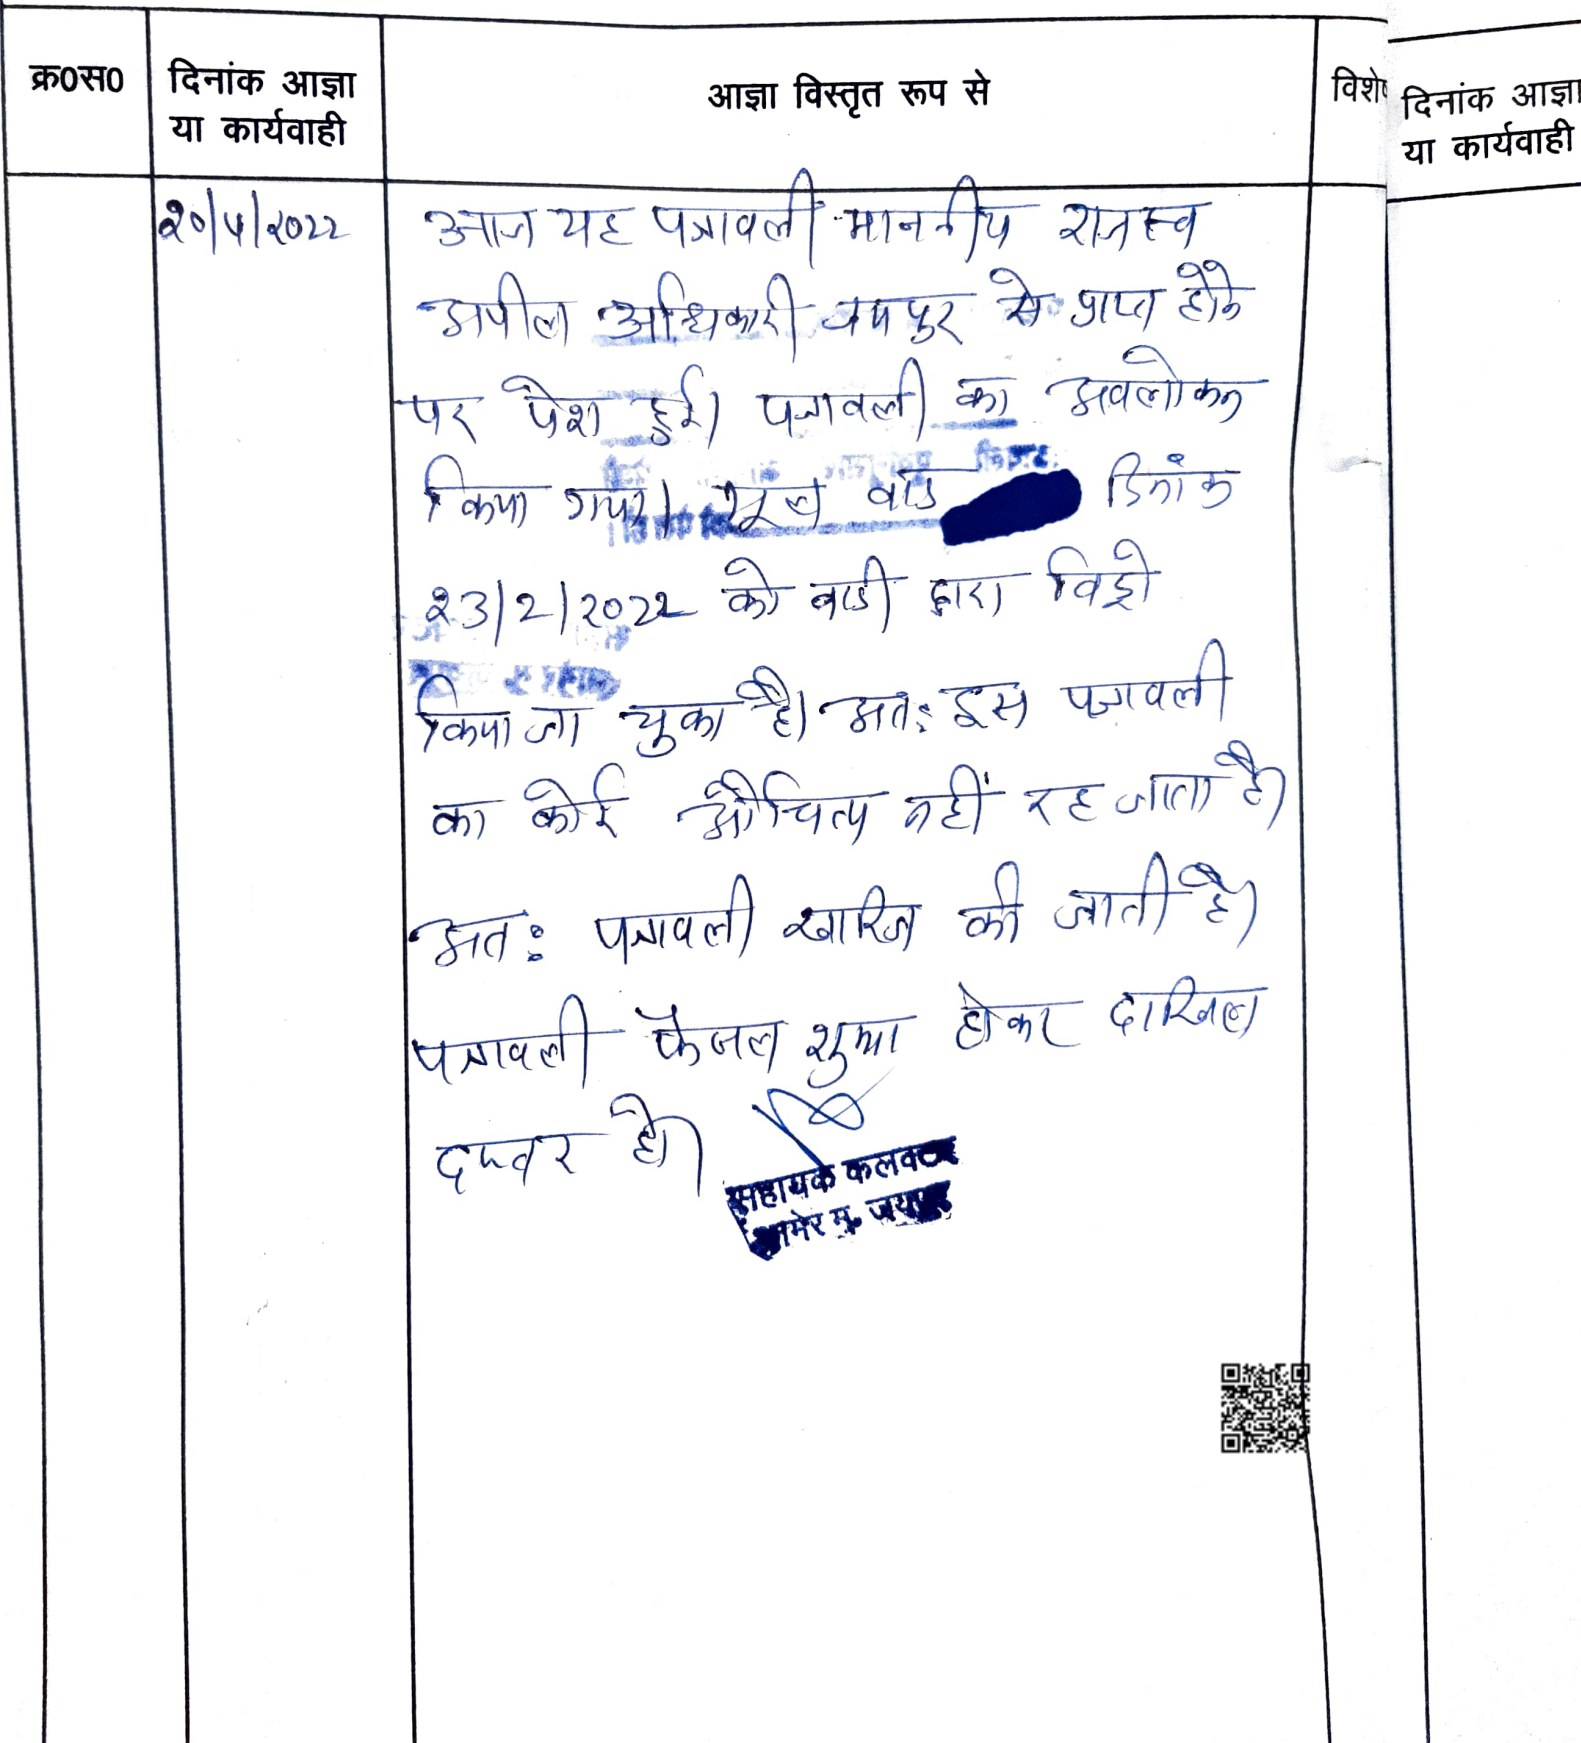 क्र0स0
दिनांक आज्ञा
या कार्यवाही
आज्ञा विस्तृत रूप से
विशे
दिनांक आज्ञा
या कार्यवाही
20/5/2022
आज यह पत्रावली माननीय राजस्व
अपील अधिकारी जयपुर से प्राप्त होने
पर पेश हुई। पत्रावली का अवलोकन
किया गया। मूल वाद दिनांक
23/2/2022 को वादी द्वारा विड्रो
किया जा चुका है। अतः इस पत्रावली
का कोई औचित्य नहीं रह जाता है।
अतः पत्रावली खारिज की जाती है।
पत्रावली फैसल शुमा होकर दाखिल
दफ्तर हो।
सहायक कलक्टर
आमेर मु. जयपुर